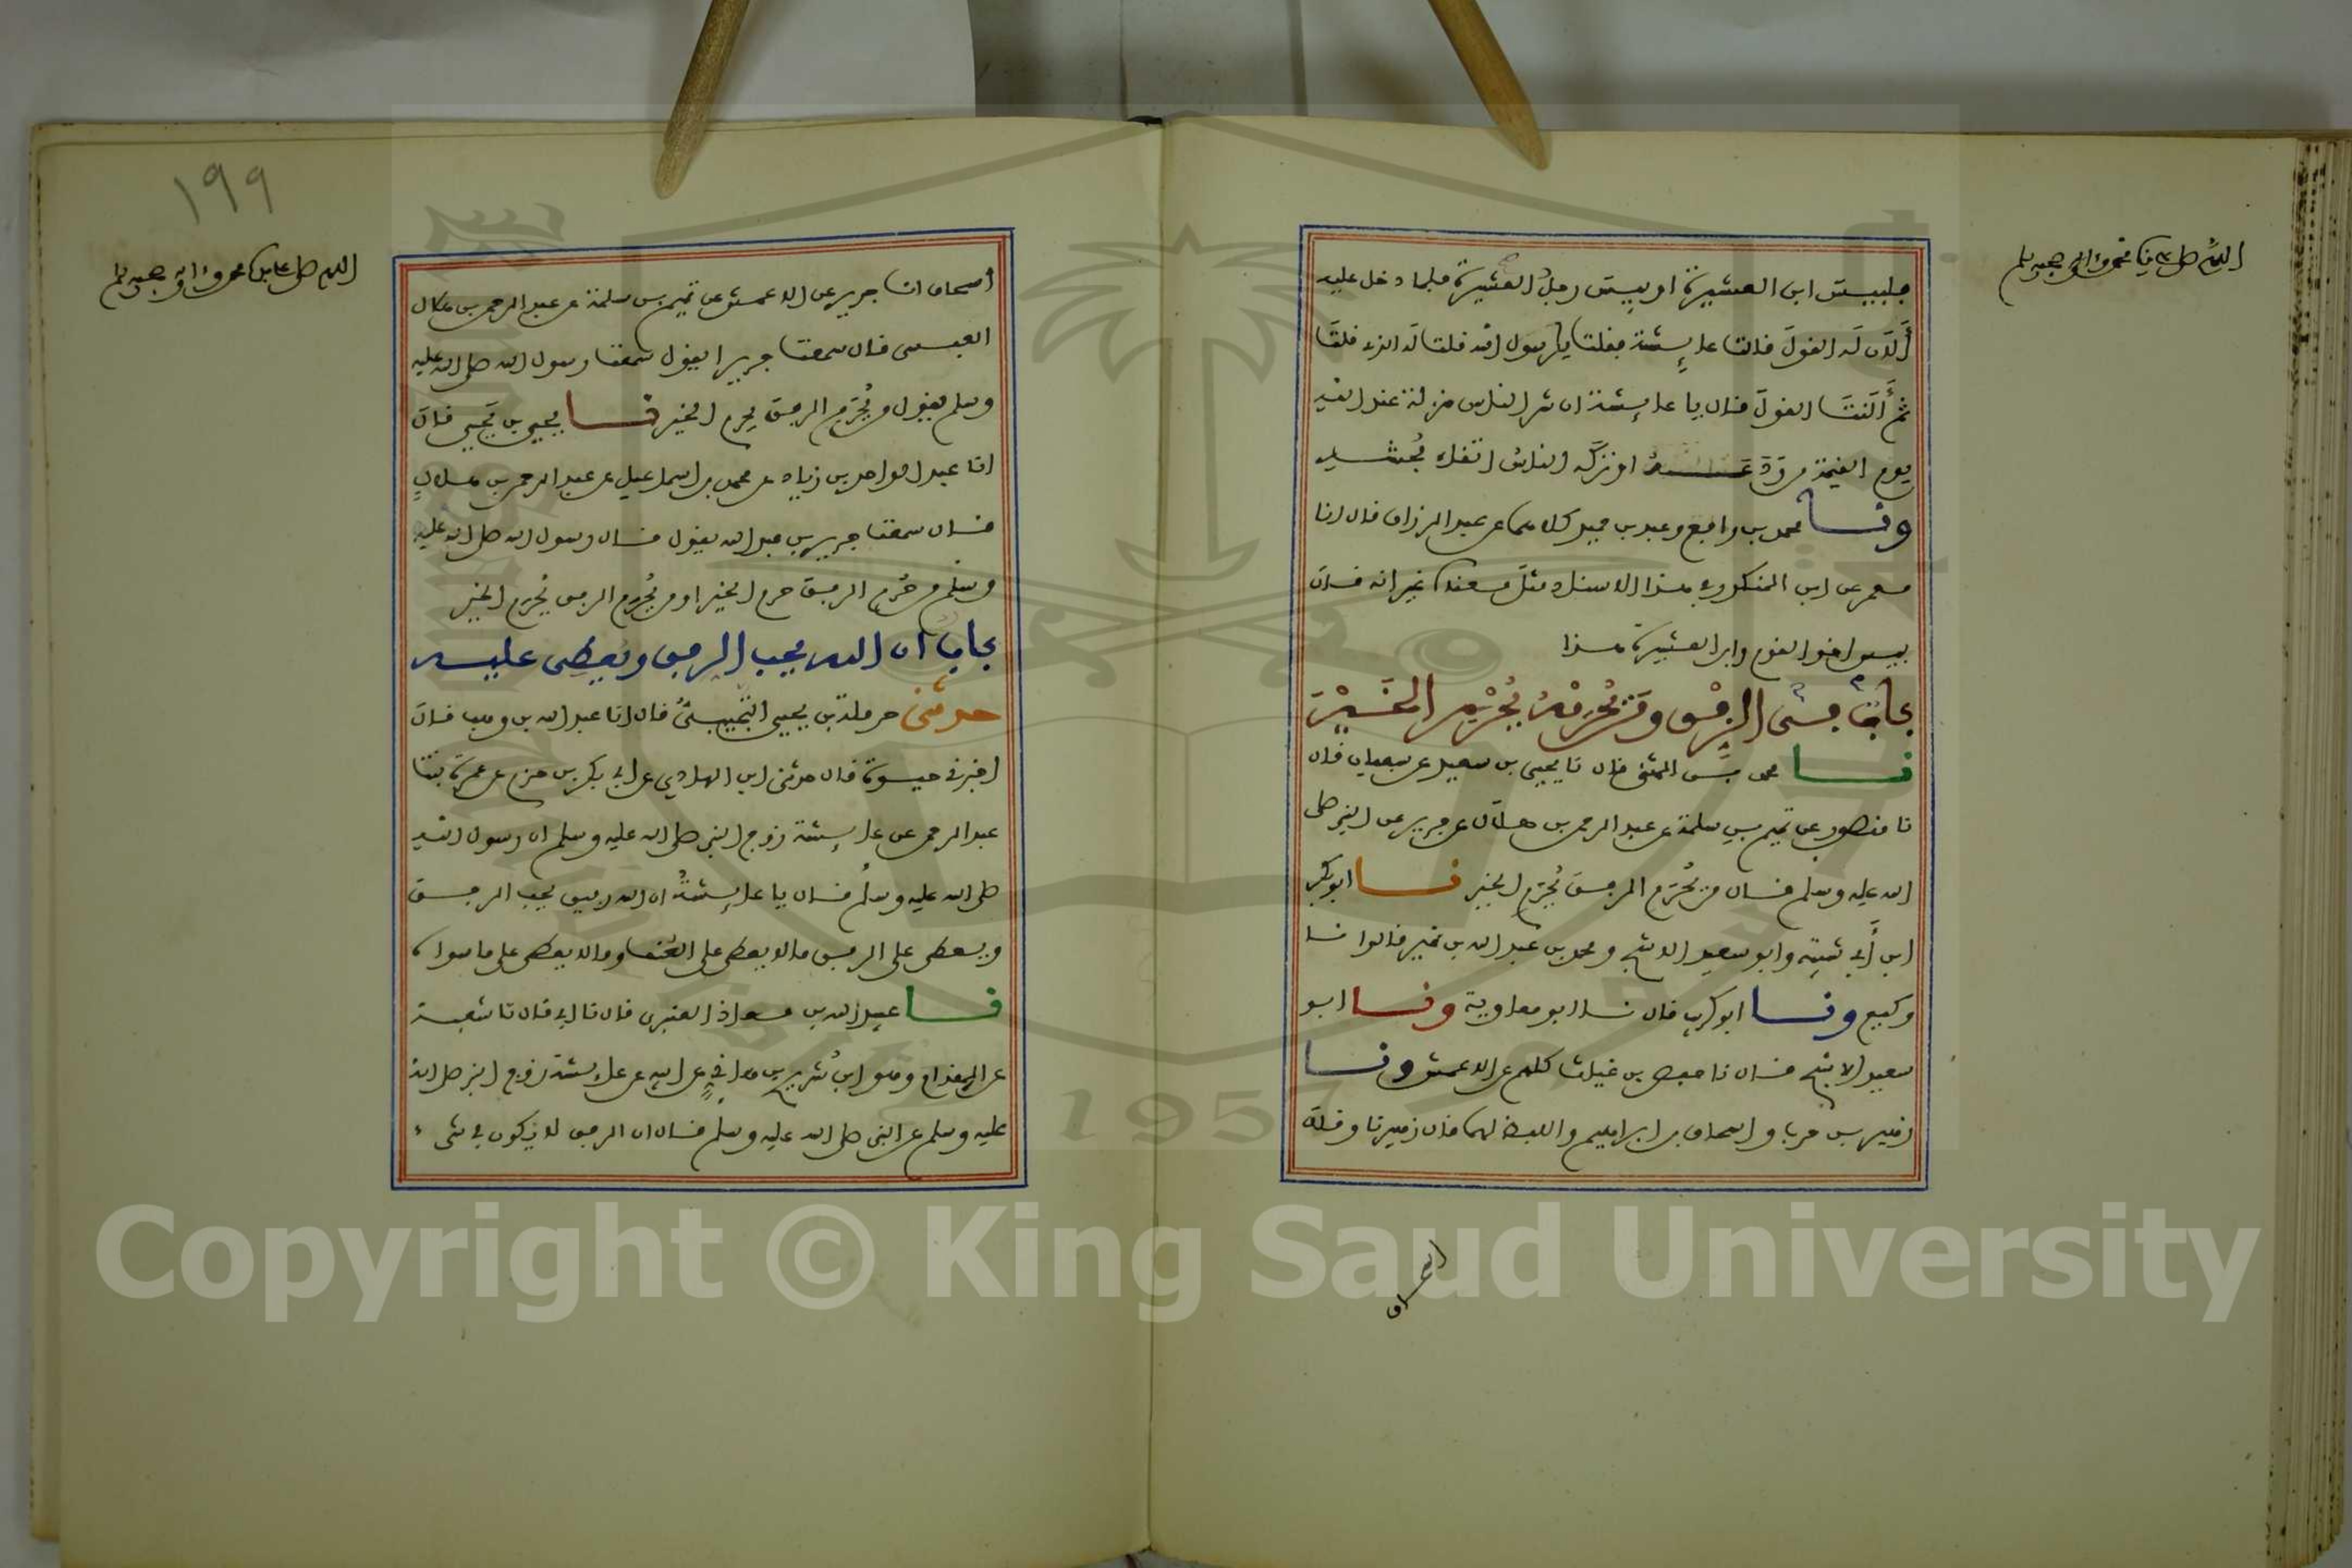 اللهم صل على سيدنا محمد وءاله وصحبه وسلم
فلبيس ابن العشيرة او بيس رجل العشيرة فلما دخل عليه
أَلَانَ لَه القولَ قالت عايشة فقلت يا رسول الله قلت له الذي قلتَ
ثم أَلَنتَ القولَ فقال يا عايشة ان شر الناس منزلة عند الله
يوم القيمة من وَدَعَه او تركَه الناسُ اتقاء فُحشه
ونا محمد بن رافع وعبد بن حميد كلاهما عن عبد الرزاق قال انا
معمر عن ابن المنكدر بهذا الاسناد مثلَ معناه غير انه قال
بيس اخو القوم وابن العشيرة هذا
باب في الرفق ومن يُحْرَمْهُ يُحْرَمِ الخَيْرَ
نا محمد بن المثنى قال نا يحيى بن سعيد عن سفيان قال
نا منصور عن تميم بن سلمة عن عبد الرحمن بن هلال عن جرير عن النبي صلى
الله عليه وسلم قال من يُحْرَمِ الرفقَ يُحْرَمِ الخير نا ابو بكر
ابن أبي شيبة وابو سعيد الاشج ومحمد بن عبد الله بن نمير قالوا نا
وكيع ونا ابو كريب قال نا ابو معاوية ونا ابو
سعيد الاشج قال نا حفص بن غياث كلهم عن الاعمش ونا
زهير بن حرب واسحاق بن ابراهيم واللفظ لهما قال زهير نا وقال
اسحاق
١٩٩
اللهم صل على سيدنا محمد وءاله وصحبه وسلم
اسحاق انا جرير عن الاعمش عن تميم بن سلمة عن عبد الرحمن بن هلال
العبسى قال سمعت جريرا يقول سمعت رسول الله صلى الله عليه
وسلم يقول من يُحْرَمِ الرفق يحرم الخير نا يحيى بن يحيى قال
انا عبد الواحد بن زياد عن محمد بن اسماعيل عن عبد الرحمن بن هلالٍ
قال سمعت جرير بن عبد الله يقول قال رسول الله صلى الله عليه
وسلم من حُرِم الرفق حرم الخير او من يُحْرَمِ الرفق يُحْرَمِ الخير
باب ان الله يحب الرفق ويعطى عليه
حدثنى حرملة بن يحيى التُّجيبىُّ قال انا عبد الله بن وهب قال
اخبرني حيوة قال حدثنى ابن الهادي عن ابي بكر بن حزم عن عمرة بنت
عبد الرحمن عن عايشة زوج النبي صلى الله عليه وسلم ان رسول الله
صلى الله عليه وسلم قال يا عايشةُ ان الله رفيق يحب الرفق
ويعطى على الرفق ما لا يعطى على العُنف وما لا يعطى على ما سواه
نا عبيد الله بن معاذ العنبرى قال نا ابي قال نا شعبة
عن المقدام وهو ابنُ شريح بن هانئٍ عن ابيه عن عايشة زوج النبي صلى الله
عليه وسلم عن النبى صلى الله عليه وسلم قال ان الرفق لا يكون في شىء
Copyright © King Saud University
1957